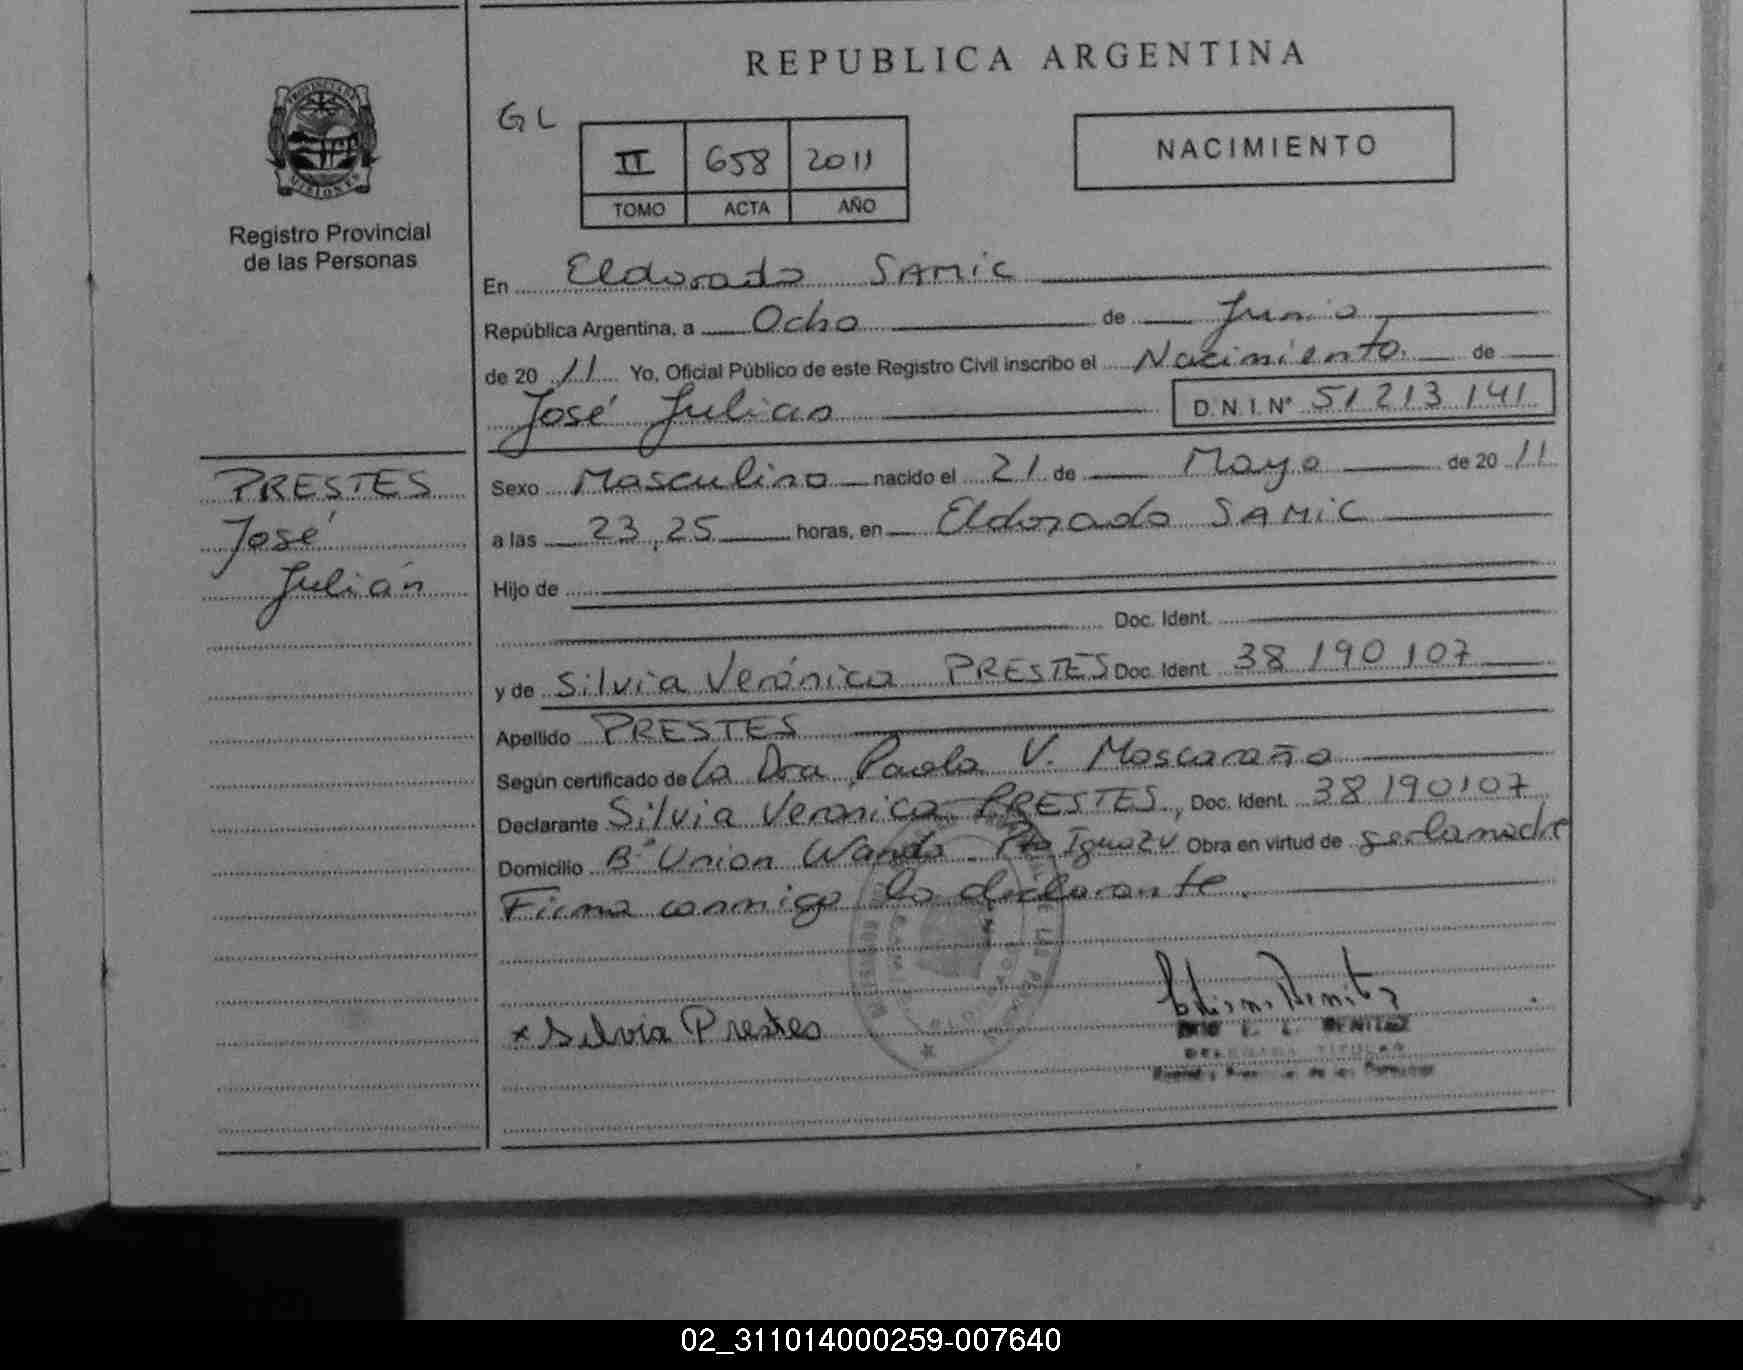 REPUBLICA ARGENTINA
GL
II 658 2011
TOMO ACTA AÑO
NACIMIENTO
PROVINCIA DE
MISIONES
Registro Provincial
de las Personas
En Eldorado SAMIC
República Argentina, a Ocho de Junio
de 20 11 Yo, Oficial Público de este Registro Civil inscribo el Nacimiento de
José Julian D.N.I. Nº 51 213 141
PRESTES
José
Julián
Sexo Masculino nacido el 21 de Mayo de 20 11
a las 23,25 horas, en Eldorado SAMIC
Hijo de
Doc. Ident.
y de Silvia Verónica PRESTES Doc. Ident. 38 190 107
Apellido PRESTES
Según certificado de la Dra Paola V.
Declarante Silvia Veronica PRESTES, Doc. Ident. 38 190107
Domicilio Bº Union Wanda Pto Iguazu Obra en virtud de ser la madre
Firma conmigo la declarante.
x Silvia Prestes
E. L. BENITEZ
DELEGADA TITULAR
02_311014000259-007640